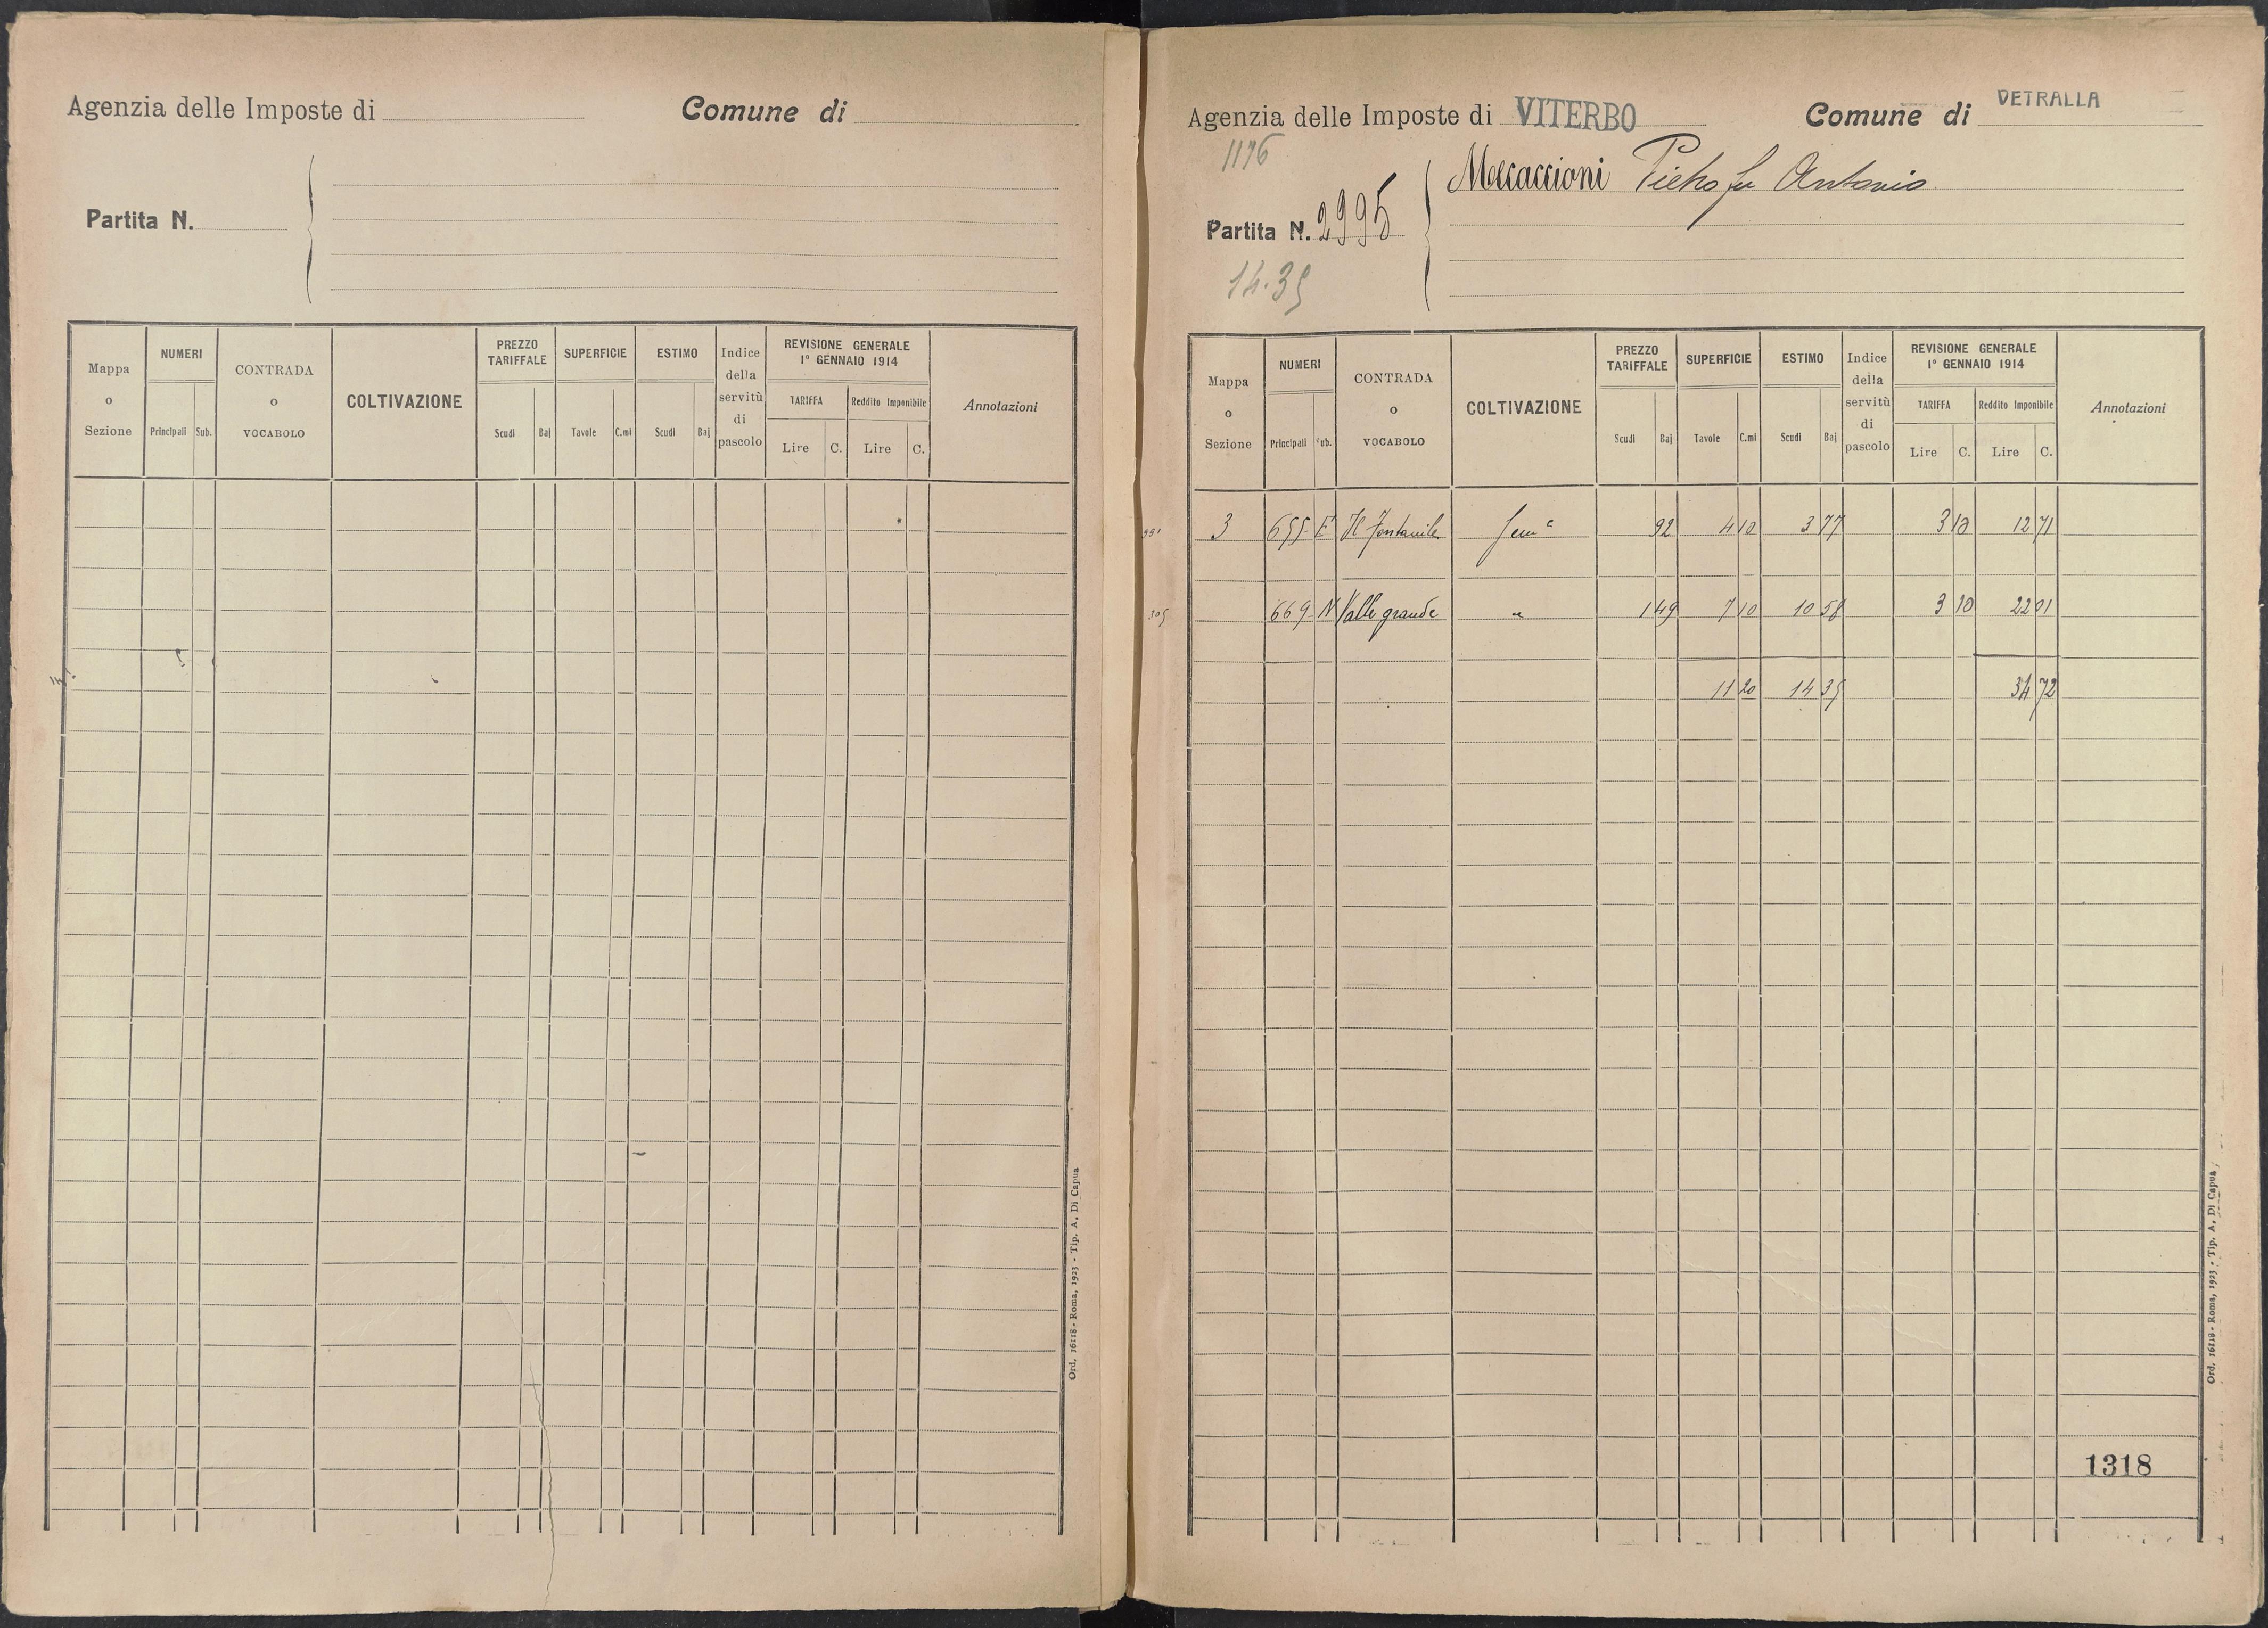 Agenzia delle Imposte di Comune di
Partita N.
Mappa o Sezione
NUMERI
Principali Sub.
CONTRADA o VOCABOLO
COLTIVAZIONE
PREZZO TARIFFALE
Scudi Baj
SUPERFICIE
Tavole C.mi
ESTIMO
Scudi Baj
Indice della servitù di pascolo
REVISIONE GENERALE
1° GENNAIO 1914
TARIFFA Reddito Imponibile
Lire C. Lire C.
Annotazioni
Ord. 16118 - Roma, 1923 - Tip. A. Di Capua
Agenzia delle Imposte di VITERBO Comune di VETRALLA
1176
Meccaccioni Pietro fu Antonio
Partita N. 2995
14.35
Mappa o Sezione
NUMERI
Principali Sub.
CONTRADA o VOCABOLO
COLTIVAZIONE
PREZZO TARIFFALE
Scudi Baj
SUPERFICIE
Tavole C.mi
ESTIMO
Scudi Baj
Indice della servitù di pascolo
REVISIONE GENERALE
1° GENNAIO 1914
TARIFFA Reddito Imponibile
Lire C. Lire C.
Annotazioni
3 655 Il Fontanile Sem° 92 4 10 3 77 3 10 12 71
305 669 N Valle grande " 1 49 7 10 10 58 3 10 22 01
11 20 14 35 34 72
1318
Ord. 16118 - Roma, 1923 - Tip. A. Di Capua